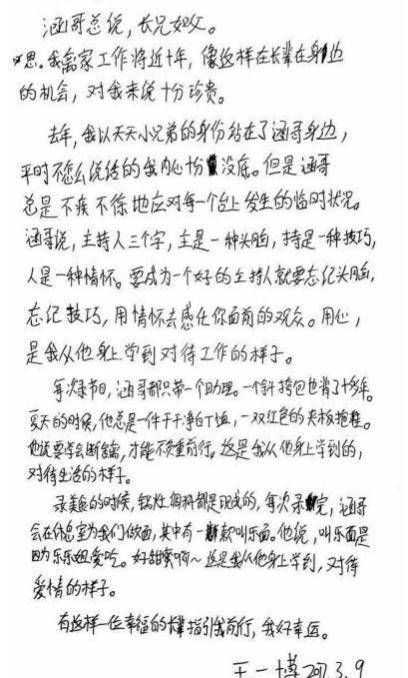 涵哥总说，长兄如父。
恩。我离家工作将近十年，像这样在长辈在身边
的机会，对我来说十分珍贵。
去年，我以天天小兄弟的身份站在了涵哥身边，
平时不怎么说话的我内心十分没底。但是涵哥
总是不疾不徐地应对每一个台上发生的临时状况。
涵哥说，主持人三个字，主是一种头脑，持是一种技巧，
人是一种情怀。要成为一个好的主持人就要忘记头脑，
忘记技巧，用情怀去感任你面前的观众。用心，
是我从他身上学到对待工作的样子。
每次录节目，涵哥都只带一个助理。一个斜挎包也背了十多年。
夏天的时候，他总是一件干干净白T恤，一双红色的夹板拖鞋。
他说要学会断舍离，才能不负重前行，这是我从他身上学到的，
对待生活的样子。
录美食的时候，锅灶调料都是现成的，每次录完，涵哥
会在休息室为我们做面，其中有一款叫乐面。他说，叫乐面是
因为乐乐姐爱吃。好甜蜜啊～这是我从他身上学到，对待
爱情的样子。
有这样一位幸福的长辈指引我前行，我好幸运。
王一博 2017.3.9